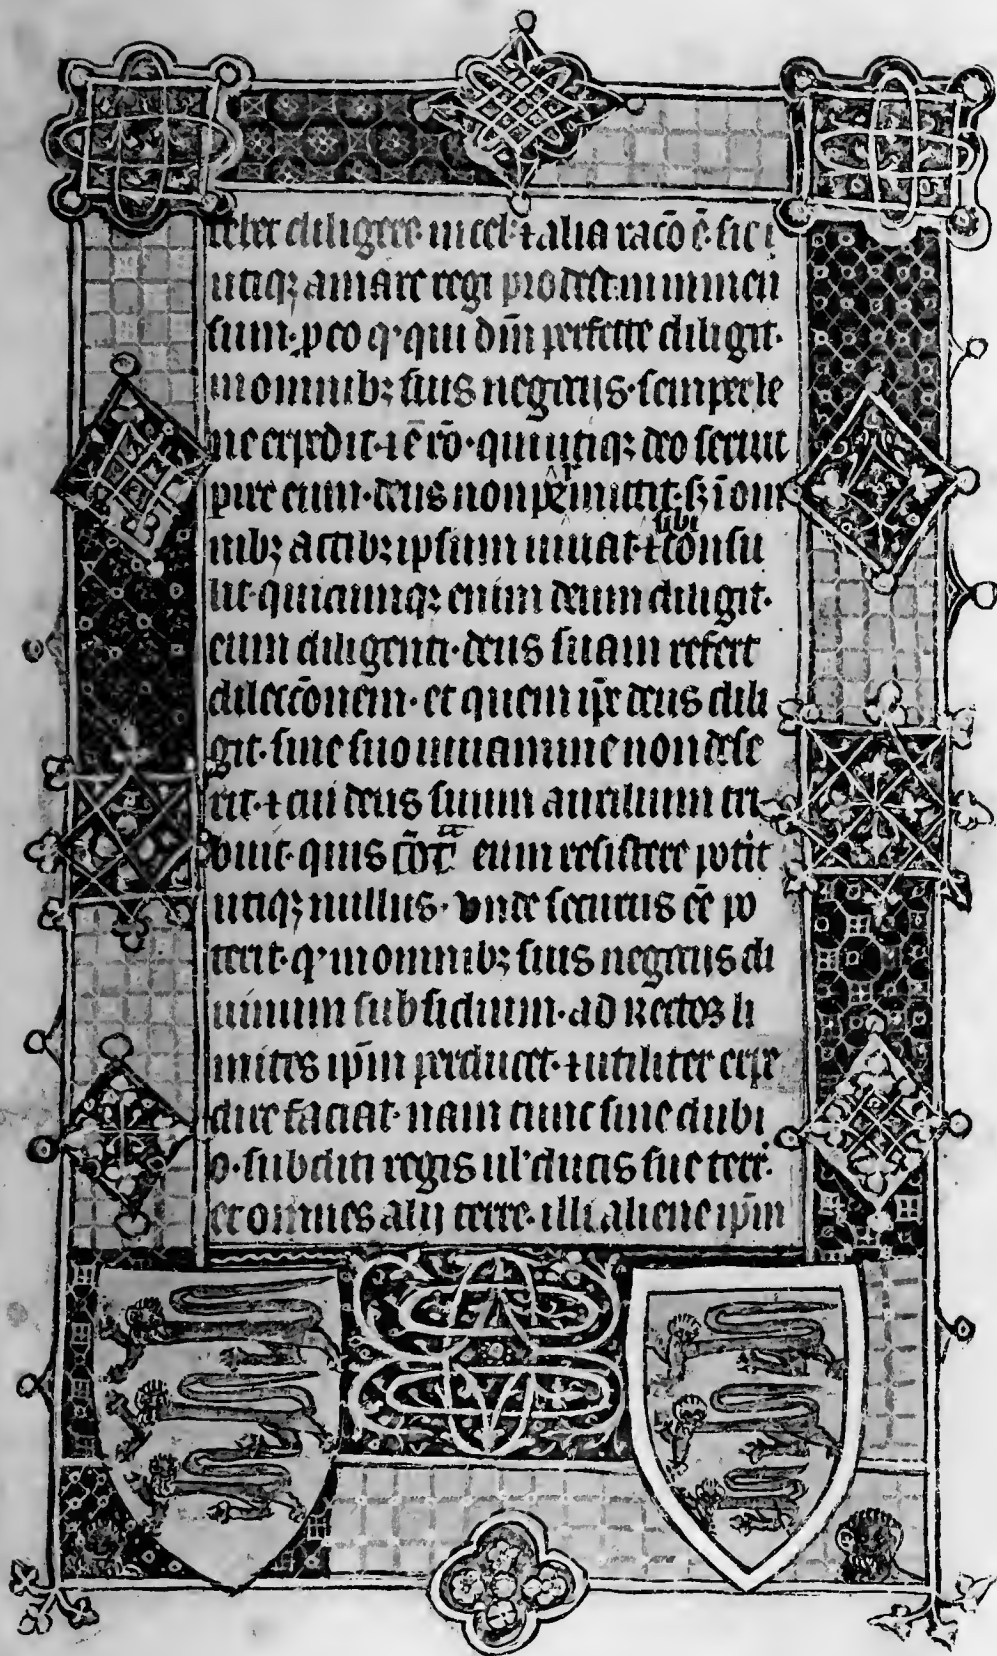 telır diligere in celıꝫ ⁊ alia racō ē. sic ı
utiqꝫ amare regi prodest in inmen
sum. p eo qꝰ qui dn̄m perfecte diligit.
in omnibꝫ suis negociis. semper le
ne expedit. ⁊ ē rō. qui utiqꝫ deo seruit
pure eum. deus non permittit. sꝫ ī om
nibꝫ actibꝫ ipsum iuuat. ⁊ sibi consu
lit. quicumqꝫ enim deum diligit.
eum diligenti. deus suam refert
dileccōnem. et quem ip̄e deus dili
git. sine suo iuuamine non dese
rit. ⁊ cui deus suum auxilium tri
buit. quis cōtra eum resistere potit
utiqꝫ nullus. vnde securus eē po
terit. qꝰ in omnibꝫ suis negociis di
uinum subsidium. ad rectos li
mites ip̄m perducet. ⁊ utiliter expe
dire faciat. nam tunc sine dubi
o. subditi regis ul' ducis sue terr̄.
et omnes alij terre. illi aliene ip̄m